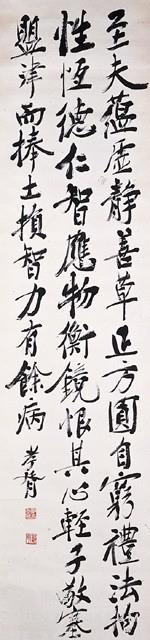 至夫蕴虚静善草正方圆自窮禮法拘
性恆德仁智應物衡鏡恨其心輕子敬塞
盟津而捧土損智力有餘病
孝胥